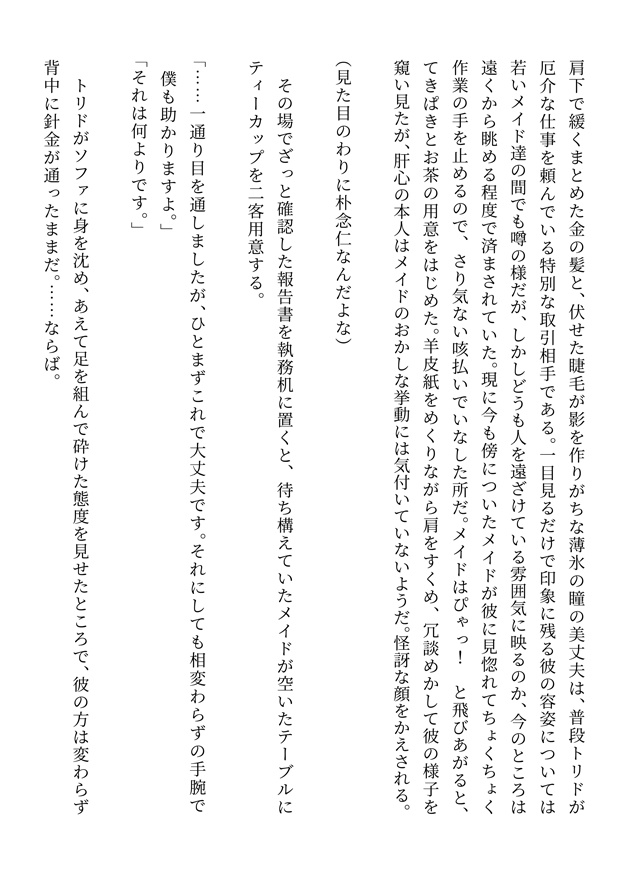 肩下で緩くまとめた金の髪と、伏せた睫毛が影を作りがちな薄氷の瞳の美丈夫は、普段トリドが
厄介な仕事を頼んでいる特別な取引相手である。一目見るだけで印象に残る彼の容姿については
若いメイド達の間でも噂の様だが、しかしどうも人を遠ざけている雰囲気に映るのか、今のところは
遠くから眺める程度で済まされていた。現に今も傍についたメイドが彼に見惚れてちょくちょく
作業の手を止めるので、さり気ない咳払いでいなした所だ。メイドはぴゃっ！　と飛びあがると、
てきぱきとお茶の用意をはじめた。羊皮紙をめくりながら肩をすくめ、冗談めかして彼の様子を
窺い見たが、肝心の本人はメイドのおかしな挙動には気付いていないようだ。怪訝な顔をかえされる。
（見た目のわりに朴念仁なんだよな）
その場でざっと確認した報告書を執務机に置くと、待ち構えていたメイドが空いたテーブルに
ティーカップを二客用意する。
「……一通り目を通しましたが、ひとまずこれで大丈夫です。それにしても相変わらずの手腕で
僕も助かりますよ。」
「それは何よりです。」
トリドがソファに身を沈め、あえて足を組んで砕けた態度を見せたところで、彼の方は変わらず
背中に針金が通ったままだ。……ならば。